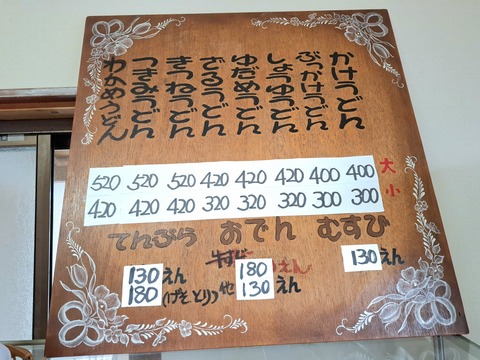 かけうどん
ぶっかけうどん
しょうゆうどん
ゆだめうどん
ざるうどん
きつねうどん
つきみうどん
わかめうどん
520 520 520 420 420 420 400 400 大
420 420 420 320 320 320 300 300 小
てんぷら おでん むすび
130えん
180(げそ とり)
牛すじ 180えん
他 130えん
130えん